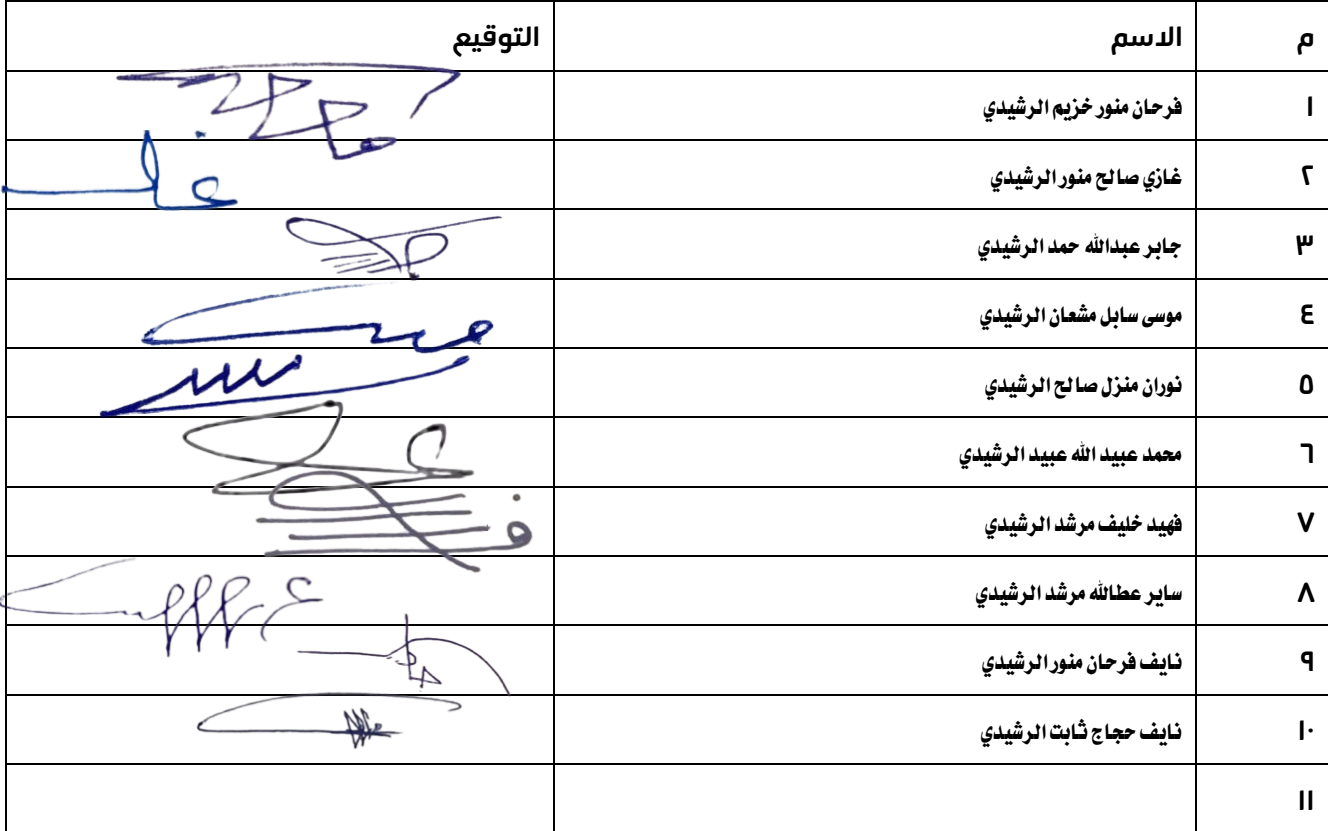 م الاسم التوقيع
١ فرحان منور خزيم الرشيدي
٢ غازي صالح منور الرشيدي
٣ جابر عبدالله حمد الرشيدي
٤ موسى سابل مشعان الرشيدي
٥ نوران منزل صالح الرشيدي
٦ محمد عبيد الله عبيد الرشيدي
٧ فهيد خليف مرشد الرشيدي
٨ ساير عطالله مرشد الرشيدي
٩ نايف فرحان منور الرشيدي
١٠ نايف حجاج ثابت الرشيدي
١١